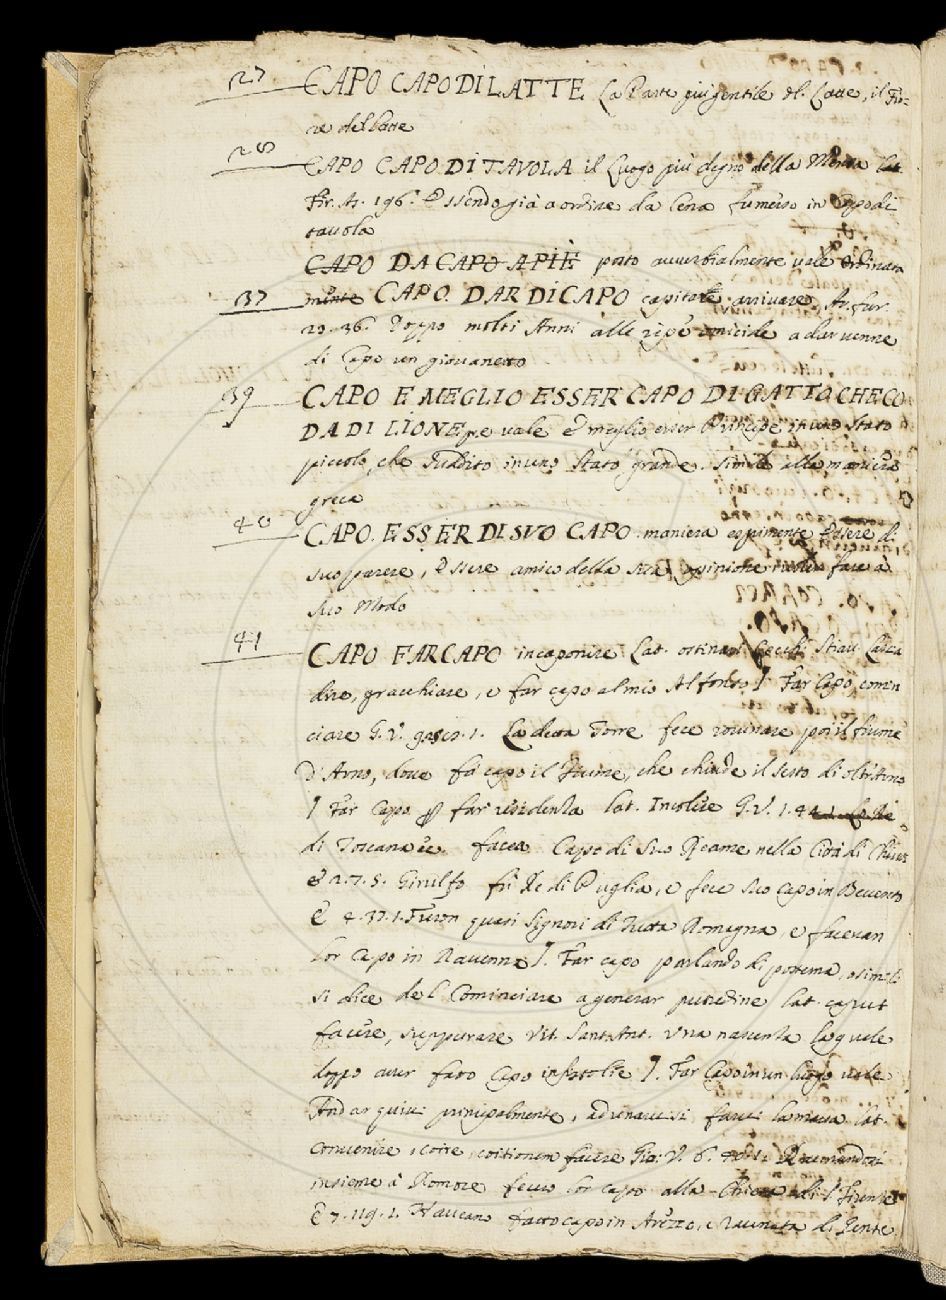 27 CAPO CAPO DI LATTE La Parte piu gentile del Latte, il Fio-
re del latte
28 CAPO CAPO DI TAVOLA il Luogo più degno della Mensa lat.
Fir. As. 196. Essendo già a ordine da Cena fumeiso in Capo di
tavola
CAPO DA CAPO A PIÈ posto avverbialmente vale ordinata
37 mente CAPO. DAR DI CAPO capitare arrivare Ar. fur.
20. 36. Doppo molti Anni alle ripe omicide a dar venne
di Capo un giovanetto
39 CAPO E MEGLIO ESSER CAPO DI GATTO CHE CO
DA DI LIONE pe vale è meglio esser Principe in uno Stato
piccolo, che suddito in uno Stato grande. Simile alla maniera
greca
40 CAPO. ESSER DI SUO CAPO maniera esprimente Essere di
suo parere, Essere amico della sua opinione fare à
suo Modo
41 CAPO FAR CAPO incaponire Lat. ostinari Cecchi Stiav. Lascia
dire, gracchiare, e far capo al mio Alfonso ] Far Capo, comin
ciare G. V. 1. La detta Torre fece rovinare poi il fiume
d'Arno, dove fà capo il fiume, che chiude il sesto di oltrarno
] Far Capo p far residenza lat. Incolere G. V. 1. 44. 1. Lo Re
di Toscana facea Capo di suo Reame nella Città di Chiusi
E 2. 7. 5. Girulfo fù Re di Puglia, e fece suo capo in Benevento
E 4. 37. 1. Furon quasi signori di tutta Romagna, e facevan
lor Capo in Ravenna ]. Far capo parlando di postema, o simili
si dice del Cominciare a generar putredine lat. caput
facere, suppurare Vit. Sant. Ant. Una nascenza la quale
doppo aver fatto Capo infistolie ]. Far Capo in un luogo vale
Andar quivi principalmente, adunarvisi farvi la massa lat.
convenire, coire, coitionem facere Gio: V. 6. 40. 1. Raunandosi
insieme à Romore fecero lor capo alla Chiesa di S. Firenze
E 7. 119. 1. Haveano fatto capo in Arezzo, e raunata di Gente